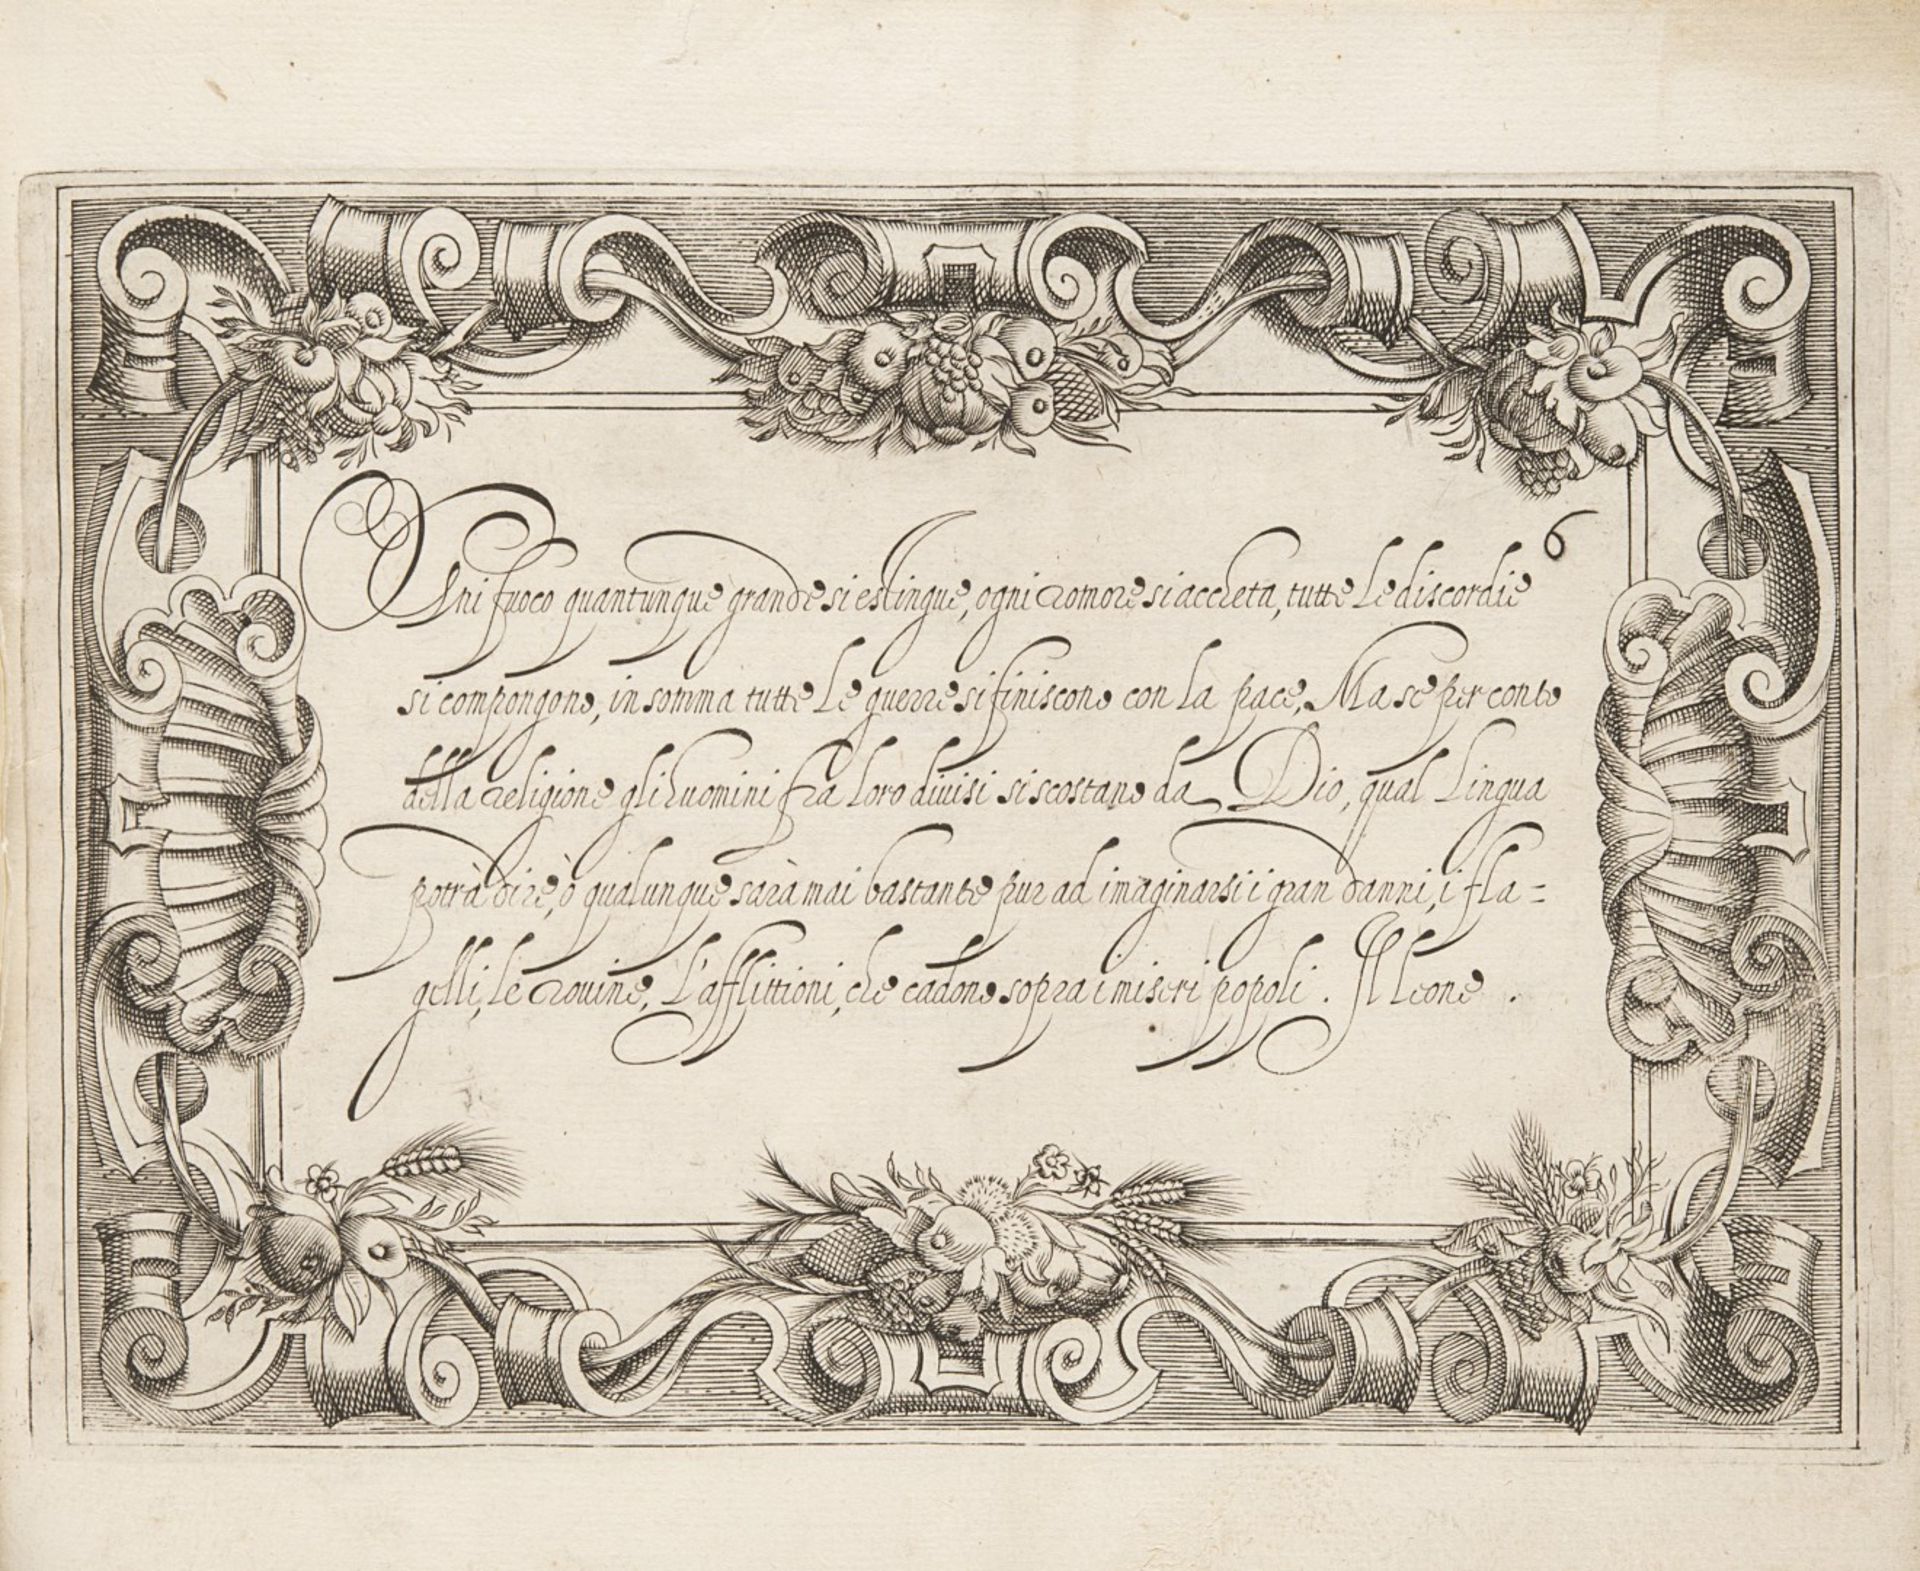 Ogni fuoco quantunque grande si estingue, ogni romore si accheta, tutte le discordie
si compongono, in somma tutte le guerre si finiscono con la pace, Ma se per conto
della religione gli huomini fra loro divisi si scostano da Dio, qual lingua
potrà dire, ò qualunque sarà mai bastante pur ad imaginarsi i gran danni, i fla=
gelli, le rouine, l'afflittioni, che cadono sopra i miseri popoli. Il Leone.